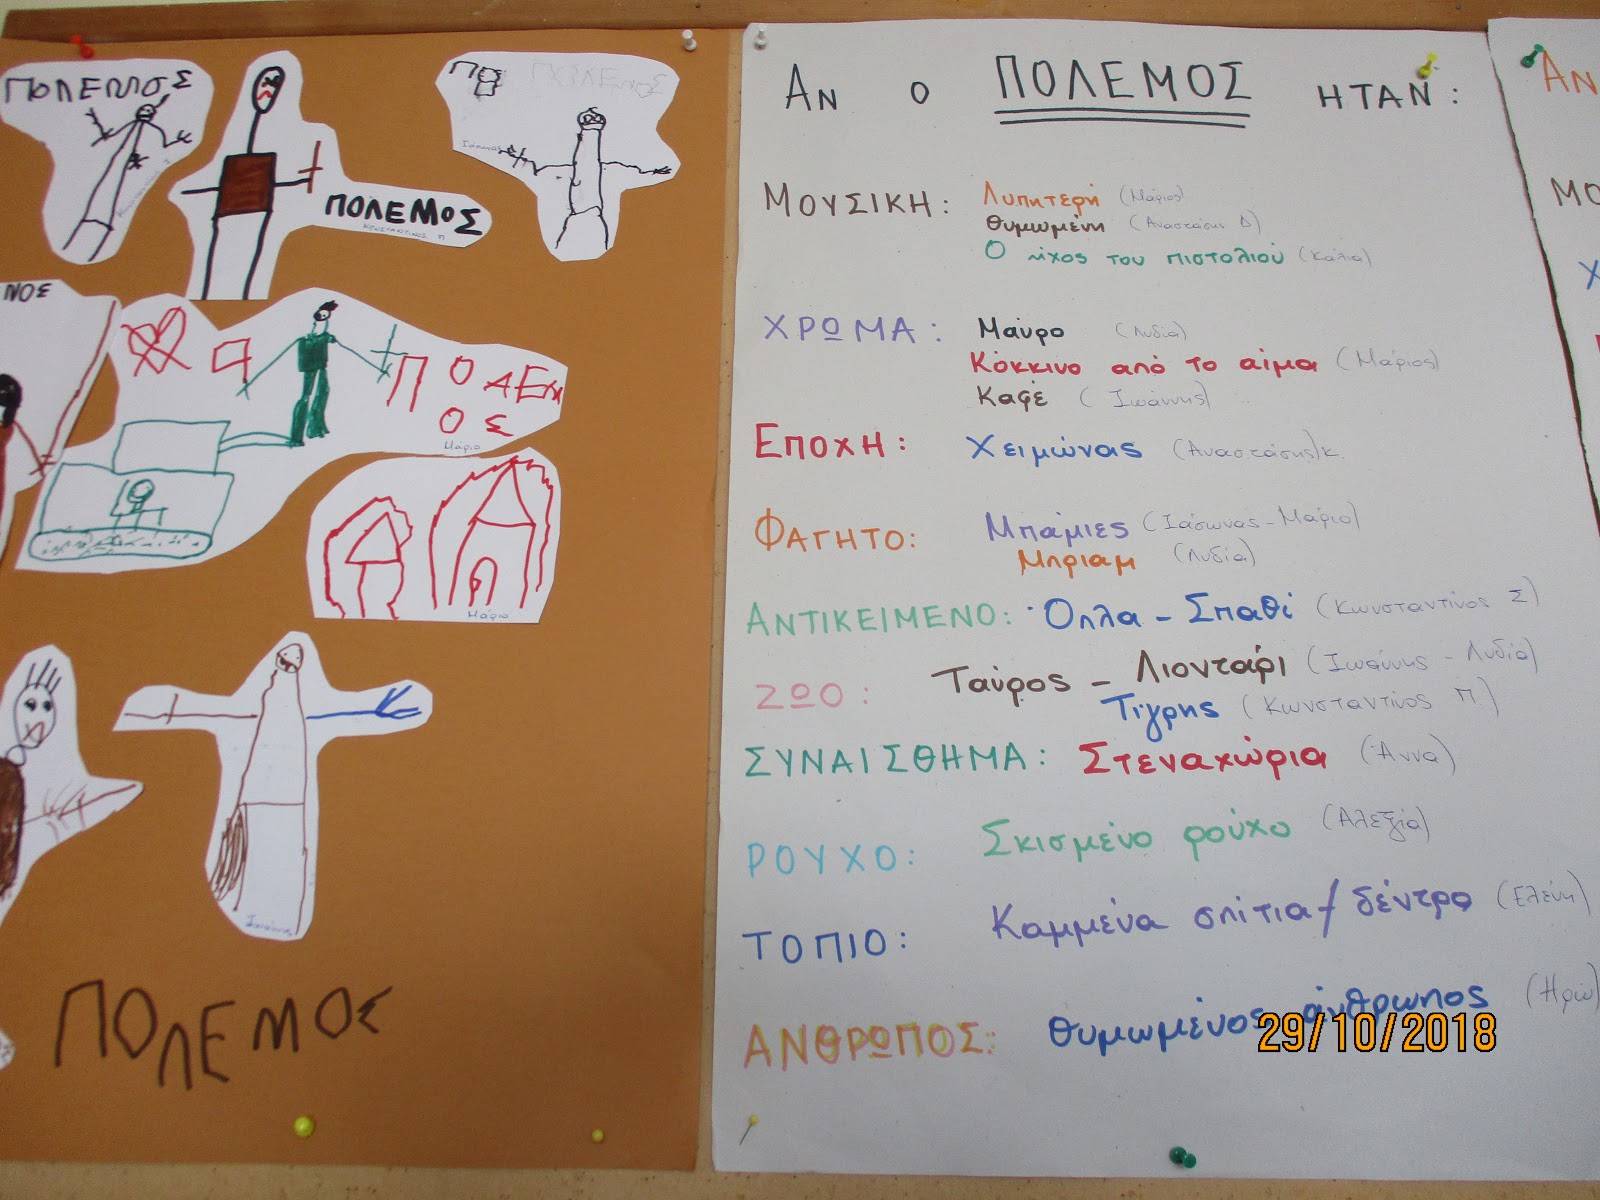 ΠΟΛΕΜΟΣ
ΠΟΛΕΜΟΣ
ΚΩΝΣΤΑΝΤΙΝΟΣ Π
ΠΟ
ΠΟΛΕΜΟΣ
Ιάσωνας
ΝΟΣ
ΠΟΛΕΜ
ΟΣ
Μάριο
Μάριο
Ιωάννης
ΠΟΛΕΜΟΣ
ΑΝ Ο ΠΟΛΕΜΟΣ ΗΤΑΝ:
ΜΟΥΣΙΚΗ: Λυπητερή (Μάριος)
Θυμωμένη (Αναστάσης Δ)
Ο ήχος του πιστολιού (Κάλια)
ΧΡΩΜΑ: Μαύρο (Λυδία)
Κόκκινο από το αίμα (Μάριος)
Καφέ (Ιωάννης)
ΕΠΟΧΗ: Χειμώνας (Αναστάσης)κ.
ΦΑΓΗΤΟ: Μπάμιες (Ιάσωνας - Μάριο)
Μπριαμ (Λυδία)
ΑΝΤΙΚΕΙΜΕΝΟ: Όπλα - Σπαθί (Κωνσταντίνος Σ)
ΖΩΟ: Ταύρος - Λιοντάρι (Ιωάννης - Λυδία)
Τίγρης (Κωνσταντίνος Π.)
ΣΥΝΑΙΣΘΗΜΑ: Στεναχώρια (Άννα)
ΡΟΥΧΟ: Σκισμένο ρούχο (Αλεξία)
ΤΟΠΙΟ: Καμμένα σπίτια/δέντρα (Ελένη)
ΑΝΘΡΩΠΟΣ: Θυμωμένος άνθρωπος (Ηρώ)
ΑΝ
ΜΟ
Χ
29/10/2018